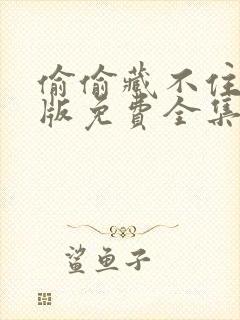 偷偷藏不住
版免费全集
鲨鱼子